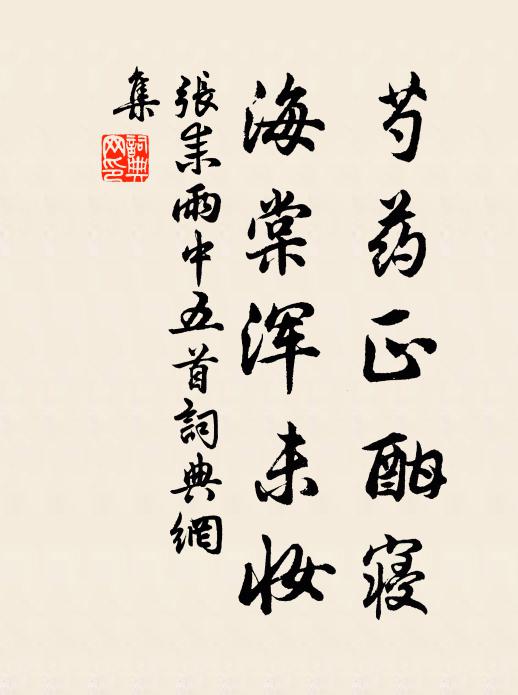 芍药正酣寝
海棠浑未妆
張耒雨中五首詞典網
集
詞典網印